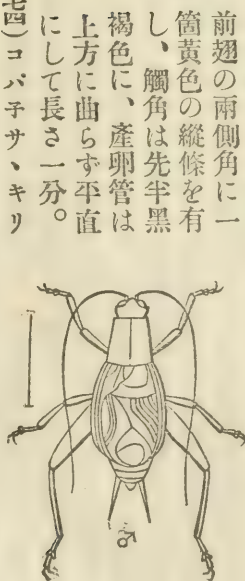 前翅の兩側角に一
箇黃色の縱條を有
し、觸角は先半黑
褐色に、產卵管は
上方に曲らず平直
にして長さ一分。
七四)コバ子サヽキリ
♂